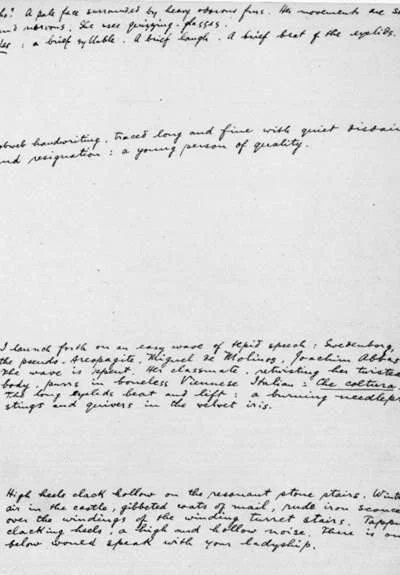 ho? A pale face surrounded by heavy odorous furs. Her movements are s
and nervous. She uses quizzing-glasses.
Yes: a brief syllable. A brief laugh. A brief beat of the eyelids.
obweb handwriting, traced long and fine with quiet disdain
and resignation: a young person of quality.
I launch forth on an easy wave of tepid speech: Swedenborg,
the pseudo-Areopagite, Miguel de Molinos, Joachim Abbas
The wave is spent. Her classmate, retwisting her twisted
body, purrs in boneless Viennese Italian: Che coltura
The long eyelids beat and lift: a burning needlepr
stings and quivers in the velvet iris.
High heels clack hollow on the resonant stone stairs. Wint
air in the castle, gibbeted coats of mail, rude iron sconce
over the windings of the winding turret stairs. Tapp
clacking heels, a high and hollow noise. There is on
below would speak with your ladyship.